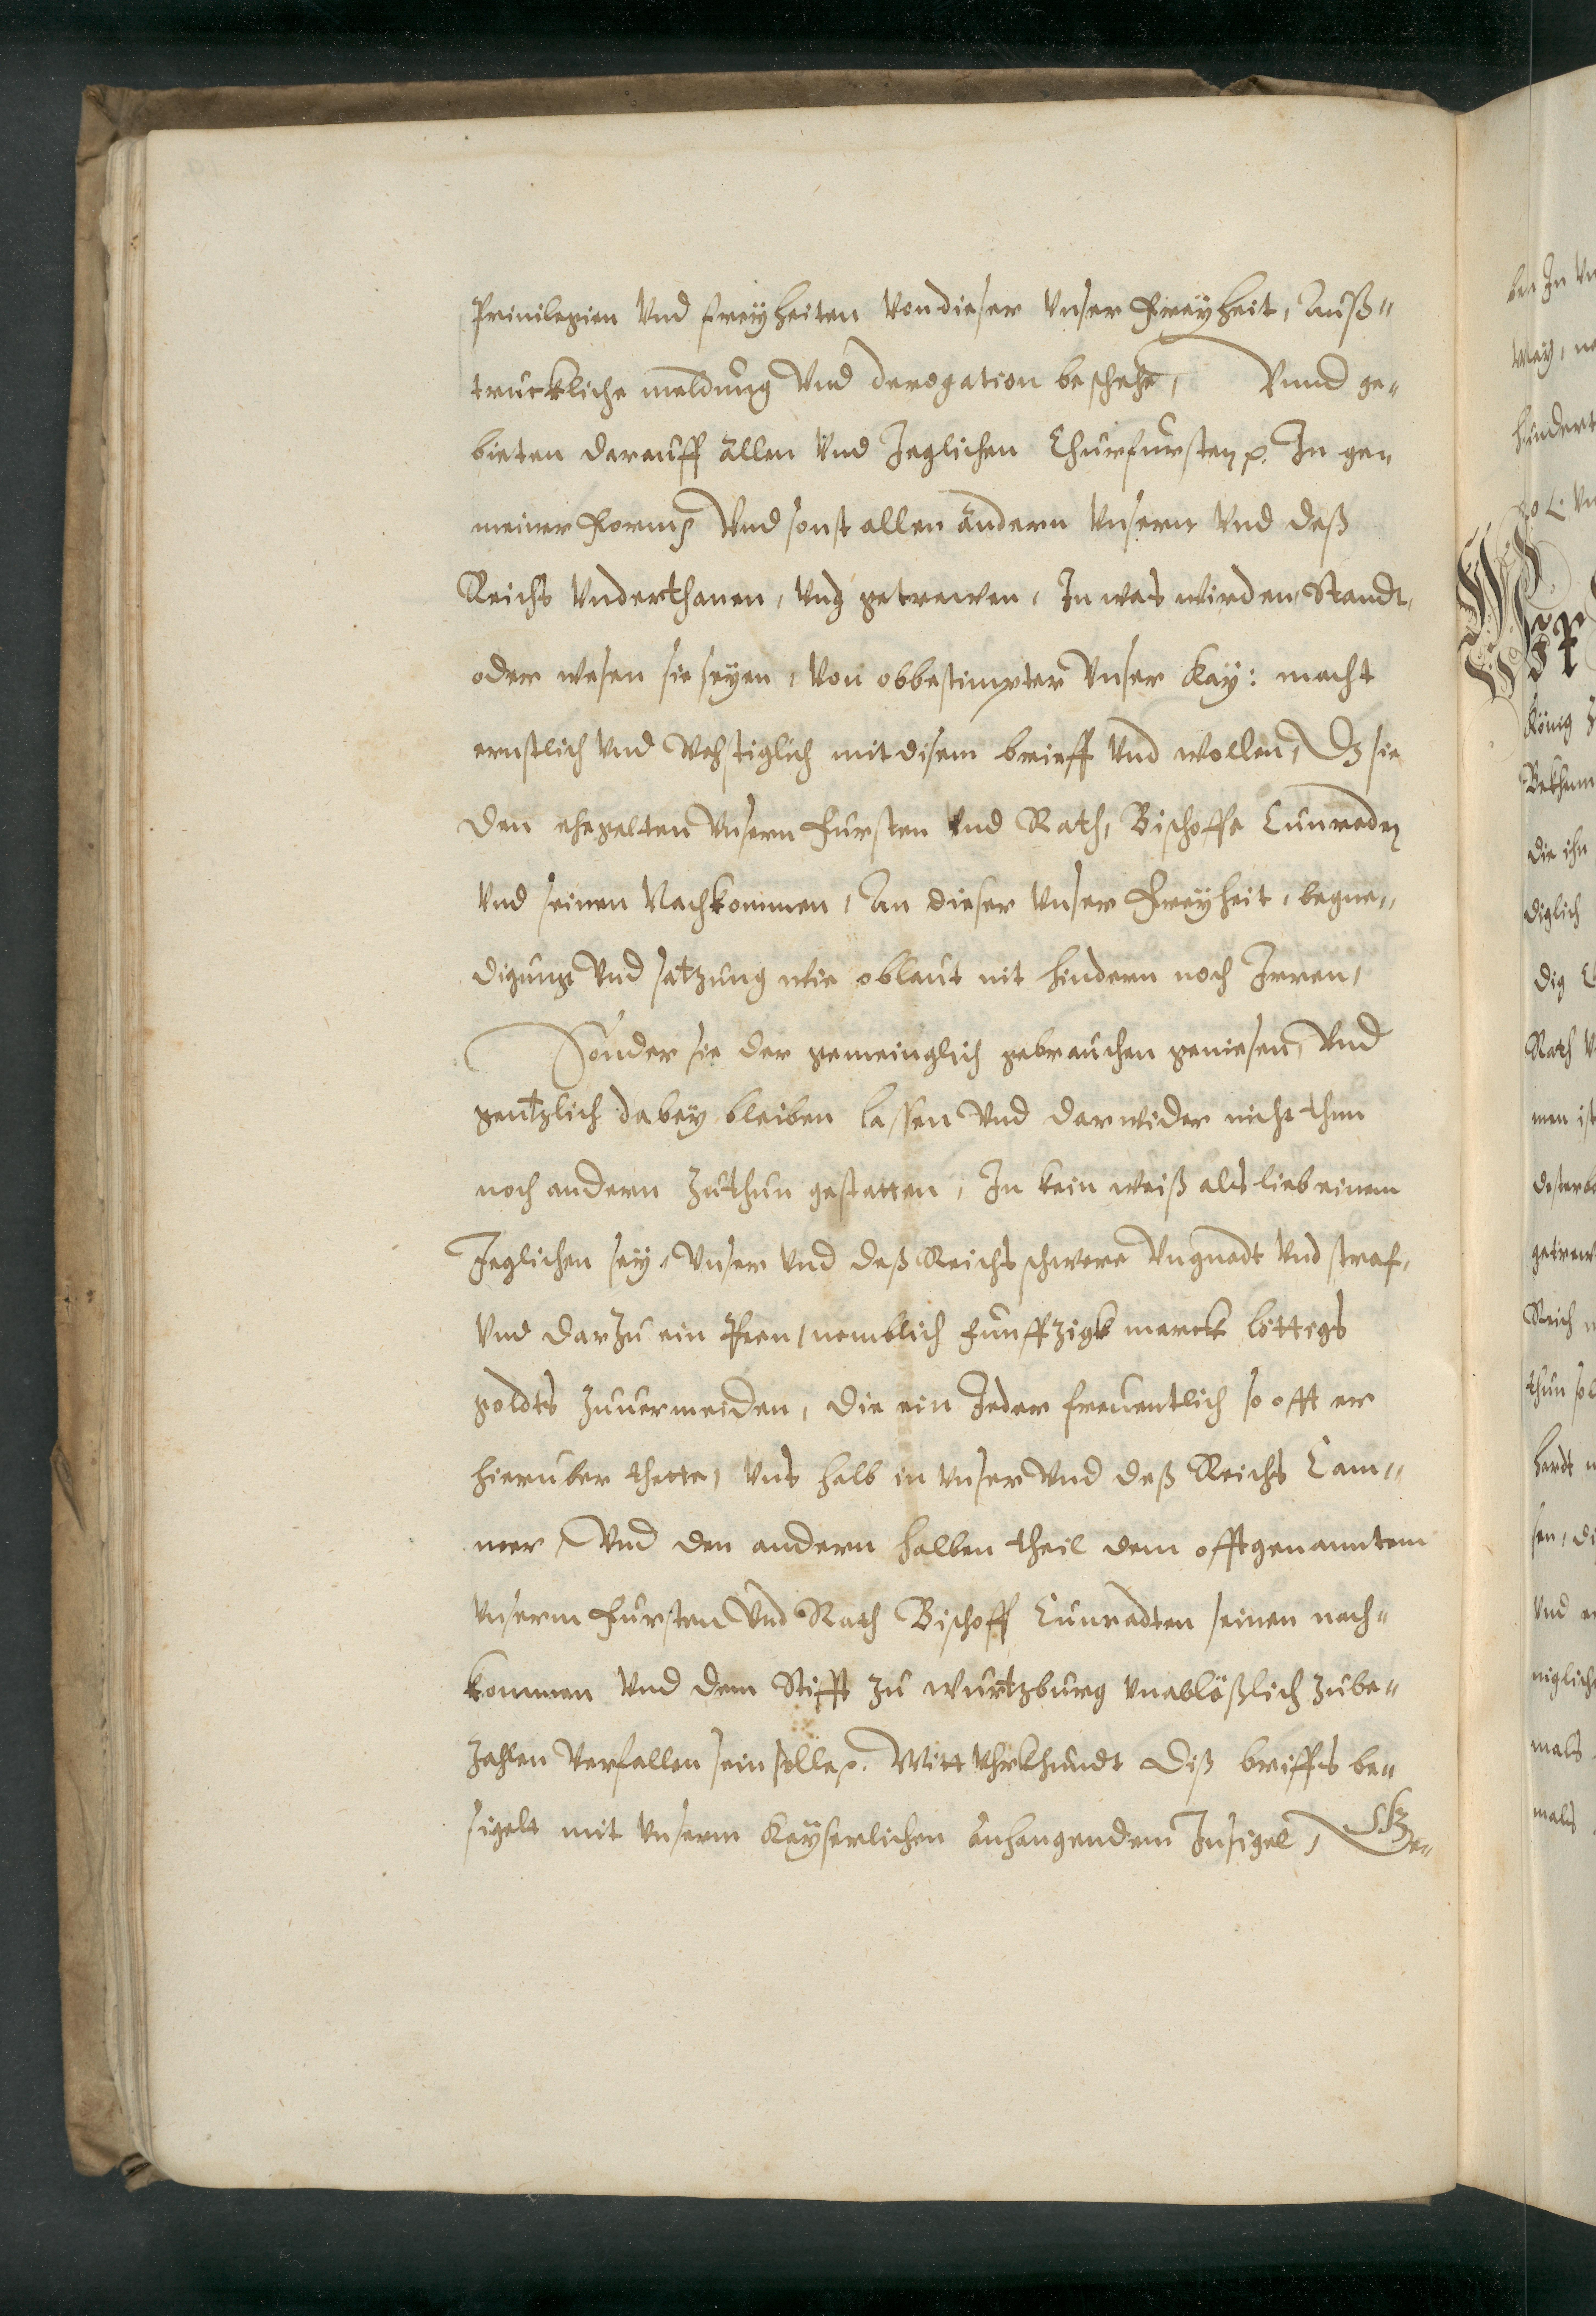 Priuilegien Vnd freyheiten Von dieser Vnser Freyheit, Auß„
truckliche meldung Vnd derogation beschehe, Vnnd ge„
bieten darauff allen Vnd Jeglichen Churfursten p. In ge„
meiner Form p Vnd sonst allen andern Vnsern Vnd deß
Reichs Vnderthanen, Vnd getrewen, In was wirden Standt,
oder wesen sie seyen, Von obbestimpter Vnser Kay: macht
ernstlich Vnd Vehstiglich mit disem brieff Vnd wollen, Dz sie
den ehegelten Vnsern Fursten Vnd Rath, Bischoffe Cunraden
Vnd seinen Nachkommen, An dieser Vnser Freyheit, begne„
digung Vnd satzung wie oblaut nit hindern noch Jrren,
Sonder sie der gemeinglich gebrauchen geniesen, Vnd
gentzlich dabey bleiben lassen Vnd darwider nicht thun
noch andern zuthun gestatten, In kein weiß als lieb einem
Jeglichen sey, Vnser Vnd deß Reichs schwere Vngnadt Vnd straf,
Vnd darzu ein Peen, nemblich Funffzigk marck lottigs
goldts zuuermeiden, die ein Jeder freuentlich so offt er
hieruber thette, Vns halb in Vnser Vnd deß Reichs Cam„
mer, Vnd den andern halben theil dem offtgenanntem
Vnserm Fursten Vnd Rath Bischoff Cunradten seinen nach„
kommen Vnd dem Stifft zu Wurtzburg Vnablößlich zube„
zahlen Verfallen sein solle p. Mitt Vhrkhundt diß briffs be„
sigelt mit Vnserm Kayserlichen anhangendem Insigel, Ge„
ben In
König
Die ihn
diglich
dig
Rath
men ist
getrew
Reich
thun sol
sen, di
Vnd
mals
mals